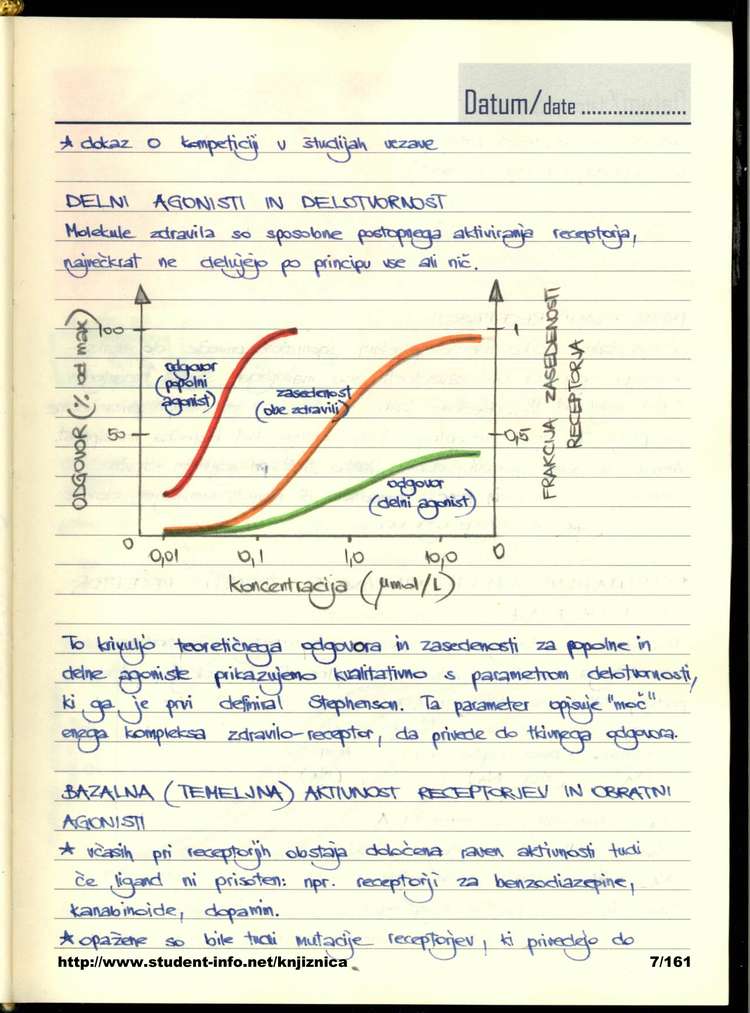 Datum/date ....................
* dokaz o kompeticiji v študijah vezave
DELNI AGONISTI IN DELOTVORNOST
Molekule zdravila so sposobne postopnega aktiviranja receptorja,
največkrat ne delujejo po principu vse ali nič.
ODGOVOR (% od max)
100
50
0
odgovor
(popolni
agonist)
zasedenost
(obe zdravili)
odgovor
(delni agonist)
1
0,5
0
FRAKCIJA ZASEDENOSTI
RECEPTORJA
0,01 0,1 1,0 10,0
koncentracija (μmol/L)
To krivuljo teoretičnega odgovora in zasedenosti za popolne in
delne agoniste prikazujemo kvalitativno s parametrom delotvornosti,
ki ga je prvi definiral Stephenson. Ta parameter opisuje "moč"
enega kompleksa zdravilo-receptor, da privede do tkivnega odgovora.
BAZALNA (TEMELJNA) AKTIVNOST RECEPTORJEV IN OBRATNI
AGONISTI
* včasih pri receptorjih obstaja določena raven aktivnosti tudi
če ligand ni prisoten: npr. receptorji za benzodiazepine,
kanabinoide, dopamin.
* opažene so bile tudi mutacije receptorjev, ki privedejo do
http://www.student-info.net/knjiznica 7/161